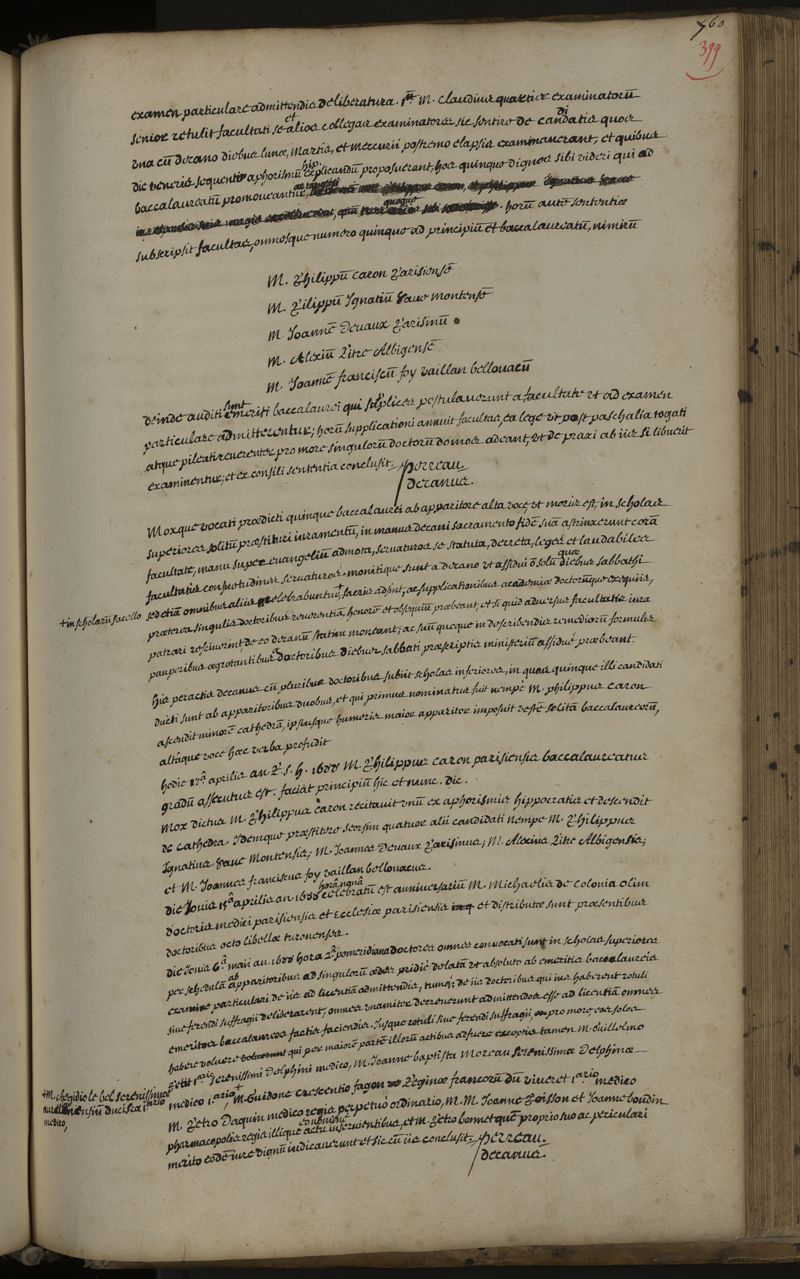 760
399
examen particulare admittendis deliberatura. M. Claudius quartier examinatorū
senior retulit facultati se et alios collegas examinatores sic sentire de candidatis quos
una cū decano diebus lunæ, Martis, et mercurii postremo elapsis examinaverant, et quibus
die veneris sequenti aphorismū explicandū proposuerant, hos quinque dignos sibi videri qui ad
baccalaureatū promoveantur,
horū autē sententiæ
subscripsit facultas, omnesque numero quinque ad principiū et baccalaureatū, nimirū
M. Philippū caron Parisiensē
M. Pilippū Ignatiū save montensē
M. Joannē Devaux Parisinū
M. Alexiū Litre Albigensē
M. Joannē franciscū foy vaillan bellovacū
deinde auditi sunt emeriti baccalaurei qui suplices postulaverunt a facultate ut ad examen
particulare admitterentur; horū supplicationi annuit facultas, ea lege ut post paschalia togati
atque pileati reverenter pro more singulorū doctorū domos adeant, ut de praxi ab iis si libuerit
examinentur; et ex consili sententia conclusit. perreau
decanus.
Moxque vocati prædicti quinque baccalaurei ab apparitore alta voce ut moris est, in scholas
superiores solitū præstituri iuramentū, in manus decani sacramento fidē suā astrinxerunt corā
facultate, manu super evangeliū admota, servaturos se statuta, decreta, leges et laudabiles
facultatis consuetudines servaturos. monitique sunt a decano ut assidui nō solū diebus sabbathi
+ in scholarū sacello sed etiā omnibus aliis quæ celebrabuntur + sacris adsint, ac supplicationibus academiæ doctorūque exequiis,
præterea singulis doctoribus reverentiā honorē et obsequiū præbeant, et si quid adversus facultatis iura
patrari resciverint de eo decanū statim moneant; ac suū quoque in describendis remediorū formulis
pauperibus ægrotantibus a doctoribus diebus sabbati præscriptis ministeriū assiduè præbeant.
his peractis decanus cū pluribus doctoribus subiit scholas inferiores, in quas quinque illi candidati
ducti sunt ab apparitoribus duobus, et qui primus nominatus fuit nempe M. philippus caron
ascendit minorē cathedrā, ipsiusque humeris maior apparitor imposuit vestē solitā baccalaureorū,
altāque voce hæc verba profudit
hodie 17ᵃ aprilis an. R. S. h. 1688 M. Philippus caron parisiensis baccalaureatus
gradū assecutus est. faciat principiū hic et nunc. dic.
Mox dictus M. Philippus caron recitavit unū ex aphorismis hippocratis et descendit
de cathedra. Idemque præstitere seorsim quatuor alii candidati nempe M. Philippus
Ignatius save Montensis; M. Joannes Devaux Parisinus; M. Alexius Litre Albigensis;
et M. Joannes franciscus foy vaillan bellovacus.
die Jovis 15ᵃ aprilis an. 1688 celebratū est anniversariū M. Michaelis de Colonia olim
doctoris medici parisiensis et ecclesiæ parisiensis et distributæ sunt præsentibus
doctoribus octo libellæ turonenses.
die Jovis 6ᵃ maii an. 1688 hora 2ᵃ pomeridiana doctores omnes convocati sunt in scholas superiores
per schedulā ab apparitoribus ad singulorū ædes pridie delatā ut absoluto ab emeritis baccalaureis
examine particulari de iis ad licentiā admittendis, tum de iis doctoribus qui ius haberent rotuli
sive ferendi suffragii deliberarent, omnes unanimiter decreverunt admittendos esse ad licentiā omnes
emeritos baccalaureos factis faciendis. Iusque rotuli sive ferendi suffragii, pro more eos solos
habere voluere qui per maiorē partē illorū actibus adfuere exceptis tamen M. Guillelmo
petit 1ario serenissimi Delphini medico, M. Joanne baptista Moreau serenissimæ Delphinæ
+ M. Ægidio le bel serenissimæ aurelianensiū ducissæ 1ario medico,
medico 1ario + M. Guidone crescentio fagon Reginæ francorū dū viveret 1ario medico
M. Petro Daquin medico regis perpetuò ordinario, M. M. Joanne Poisson et Joanne boudin
pharmacopolis regis illique actu inservientibus, et M. Petro bonnet quē proprio suo ac peculiari
merito eodē iure dignū iudicaverunt et sic cū iis conclusit. perreau
decanus.